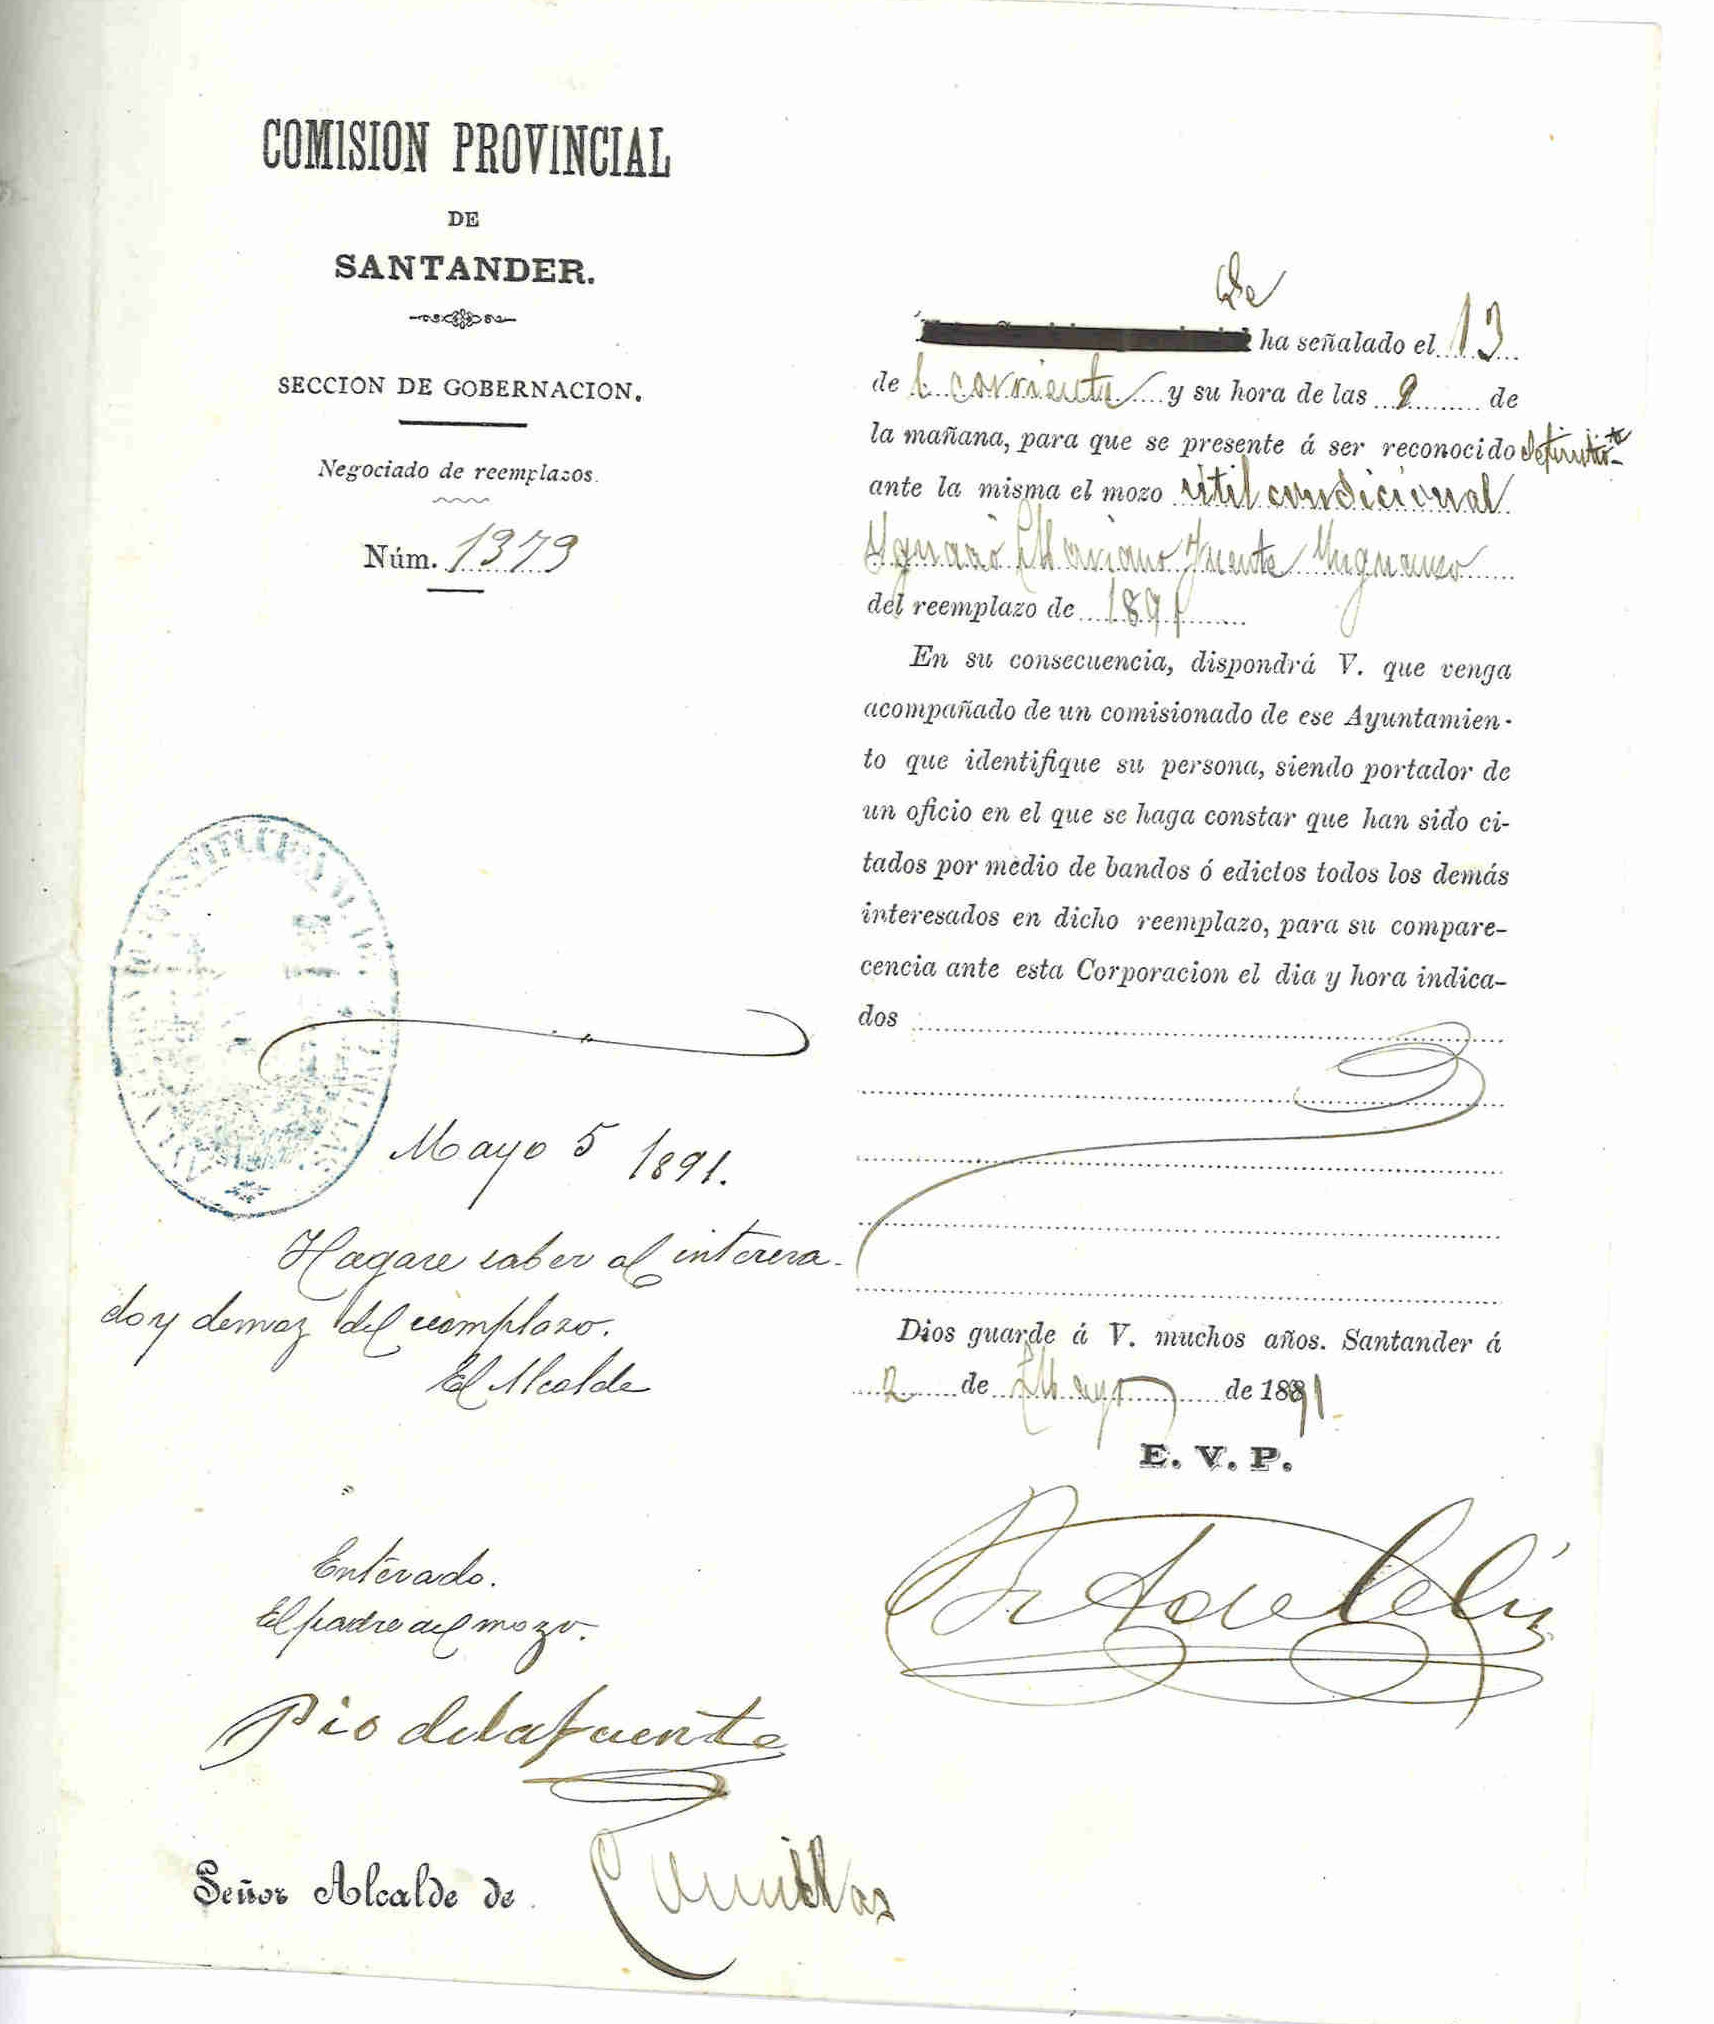 COMISION PROVINCIAL
DE
SANTANDER.
SECCION DE GOBERNACION.
Negociado de reemplazos.
Núm. 1379
Se
ha señalado el 13
de l corriente y su hora de las 9 de
la mañana, para que se presente á ser reconocido definitite
ante la misma el mozo útil condicional
Ygnacio Mariano Fuente
del reemplazo de 1891
En su consecuencia, dispondrá V. que venga
acompañado de un comisionado de ese Ayuntamien-
to que identifique su persona, siendo portador de
un oficio en el que se haga constar que han sido ci-
tados por medio de bandos ó edictos todos los demás
interesados en dicho reemplazo, para su compare-
cencia ante esta Corporacion el dia y hora indica-
dos
Dios guarde á V. muchos años. Santander á
2 de Mayo de 1891
E. V. P.
Mayo 5 1891.
Hagase saber al interesa-
do y demas del reemplazo.
El Alcalde
Enterado.
El padre del mozo.
Pio delafuente
Señor Alcalde de Comillas